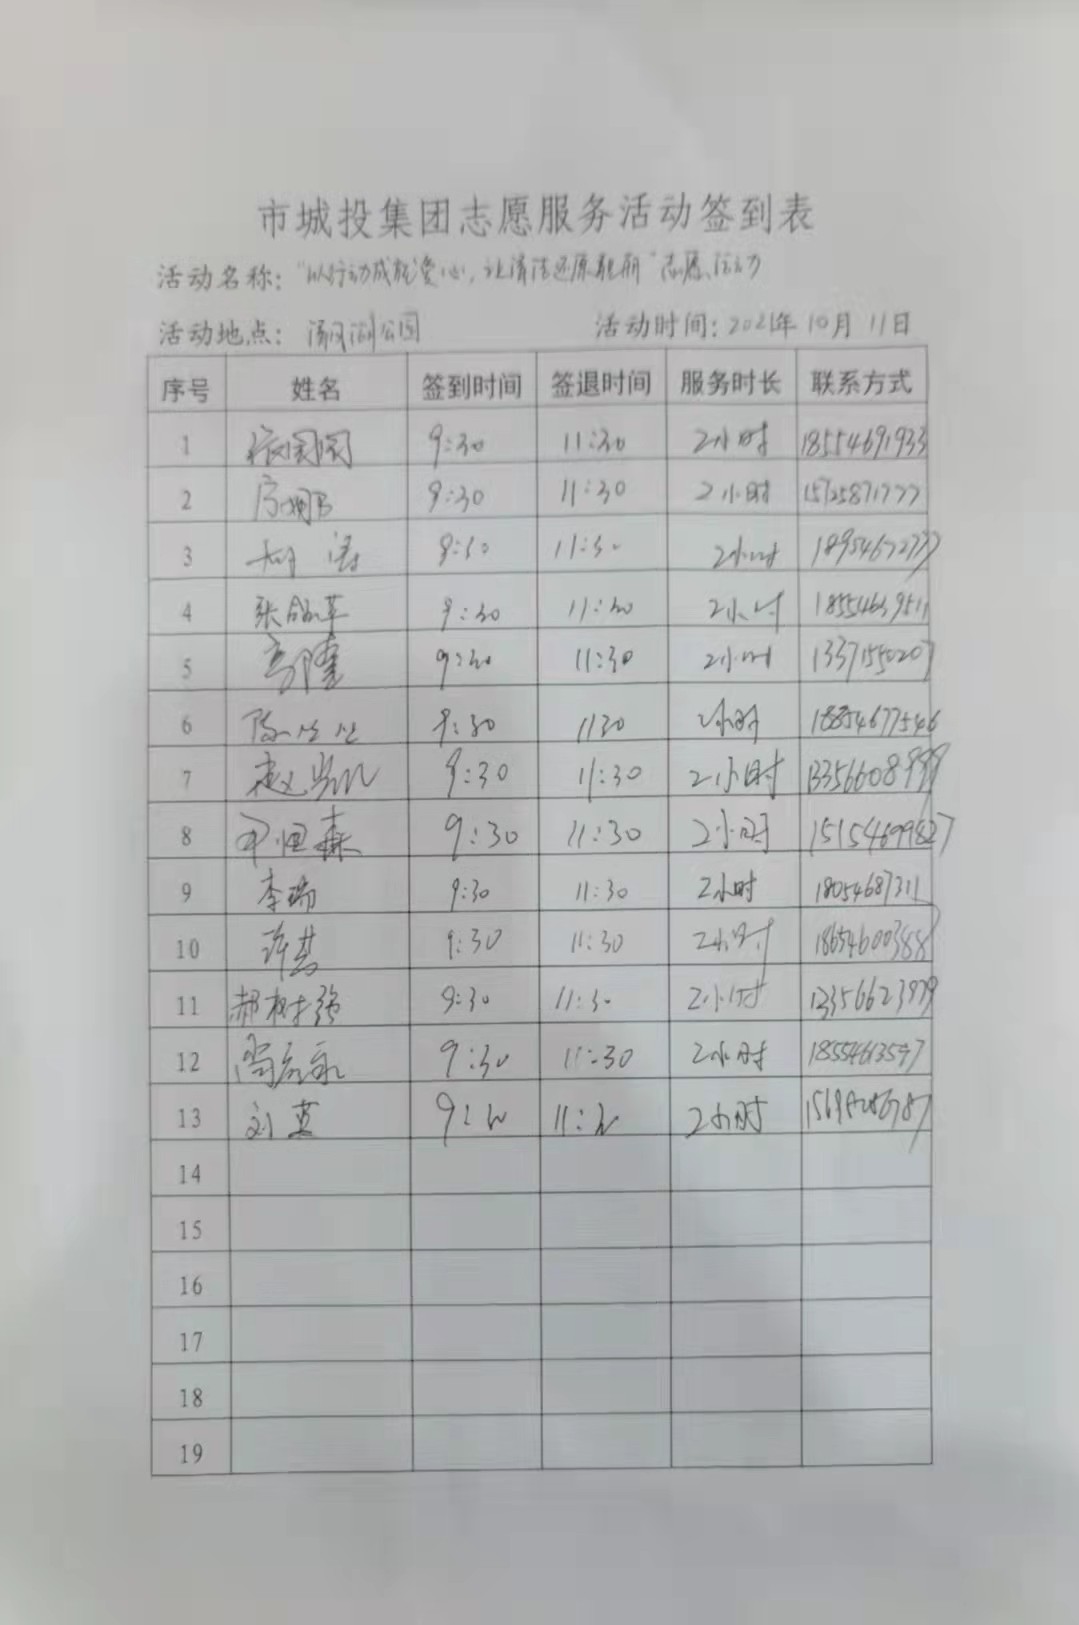 市城投集团志愿服务活动签到表
活动名称：“以行动成就爱心，让清洁还原靓丽”志愿活动
活动地点：清风湖公园 活动时间：2021年10月11日
序号 姓名 签到时间 签退时间 服务时长 联系方式
1 9:30 11:30 2小时 18554691933
2 9:30 11:30 2小时 15725871777
3 9:30 11:30 2小时 18954672737
4 9:30 11:30 2小时 18554639511
5 高隆 9:30 11:30 2小时 13371550207
6 9:30 1130 2小时 18854677546
7 9:30 11:30 2小时 13356608999
8 尹恒森 9:30 11:30 2小时 15154699827
9 李瑞 9:30 11:30 2小时 18054687311
10 许某 9:30 11:30 2小时 18654600388
11 郝树强 9:30 11:30 2小时 13356623979
12 9:30 11:30 2小时 18554613597
13 刘蓝 9:30 11:30 2小时
14
15
16
17
18
19